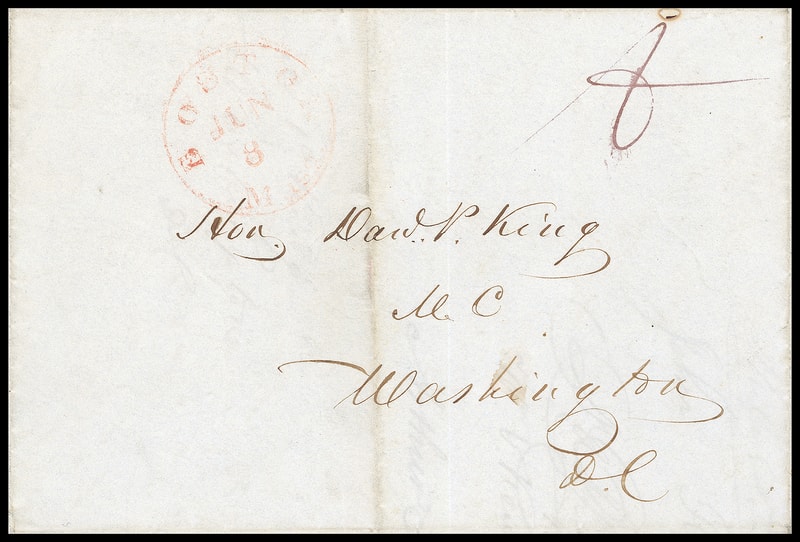 BOSTON
JUN
8
MAS
Hon. Dan. P. King
M. C
Washington
D. C